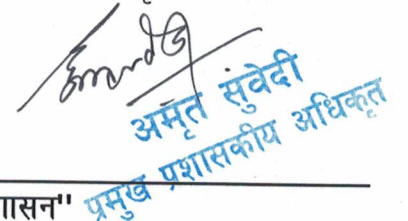 अमृत सुवेदी
प्रमुख प्रशासकीय अधिकृत
ासन"